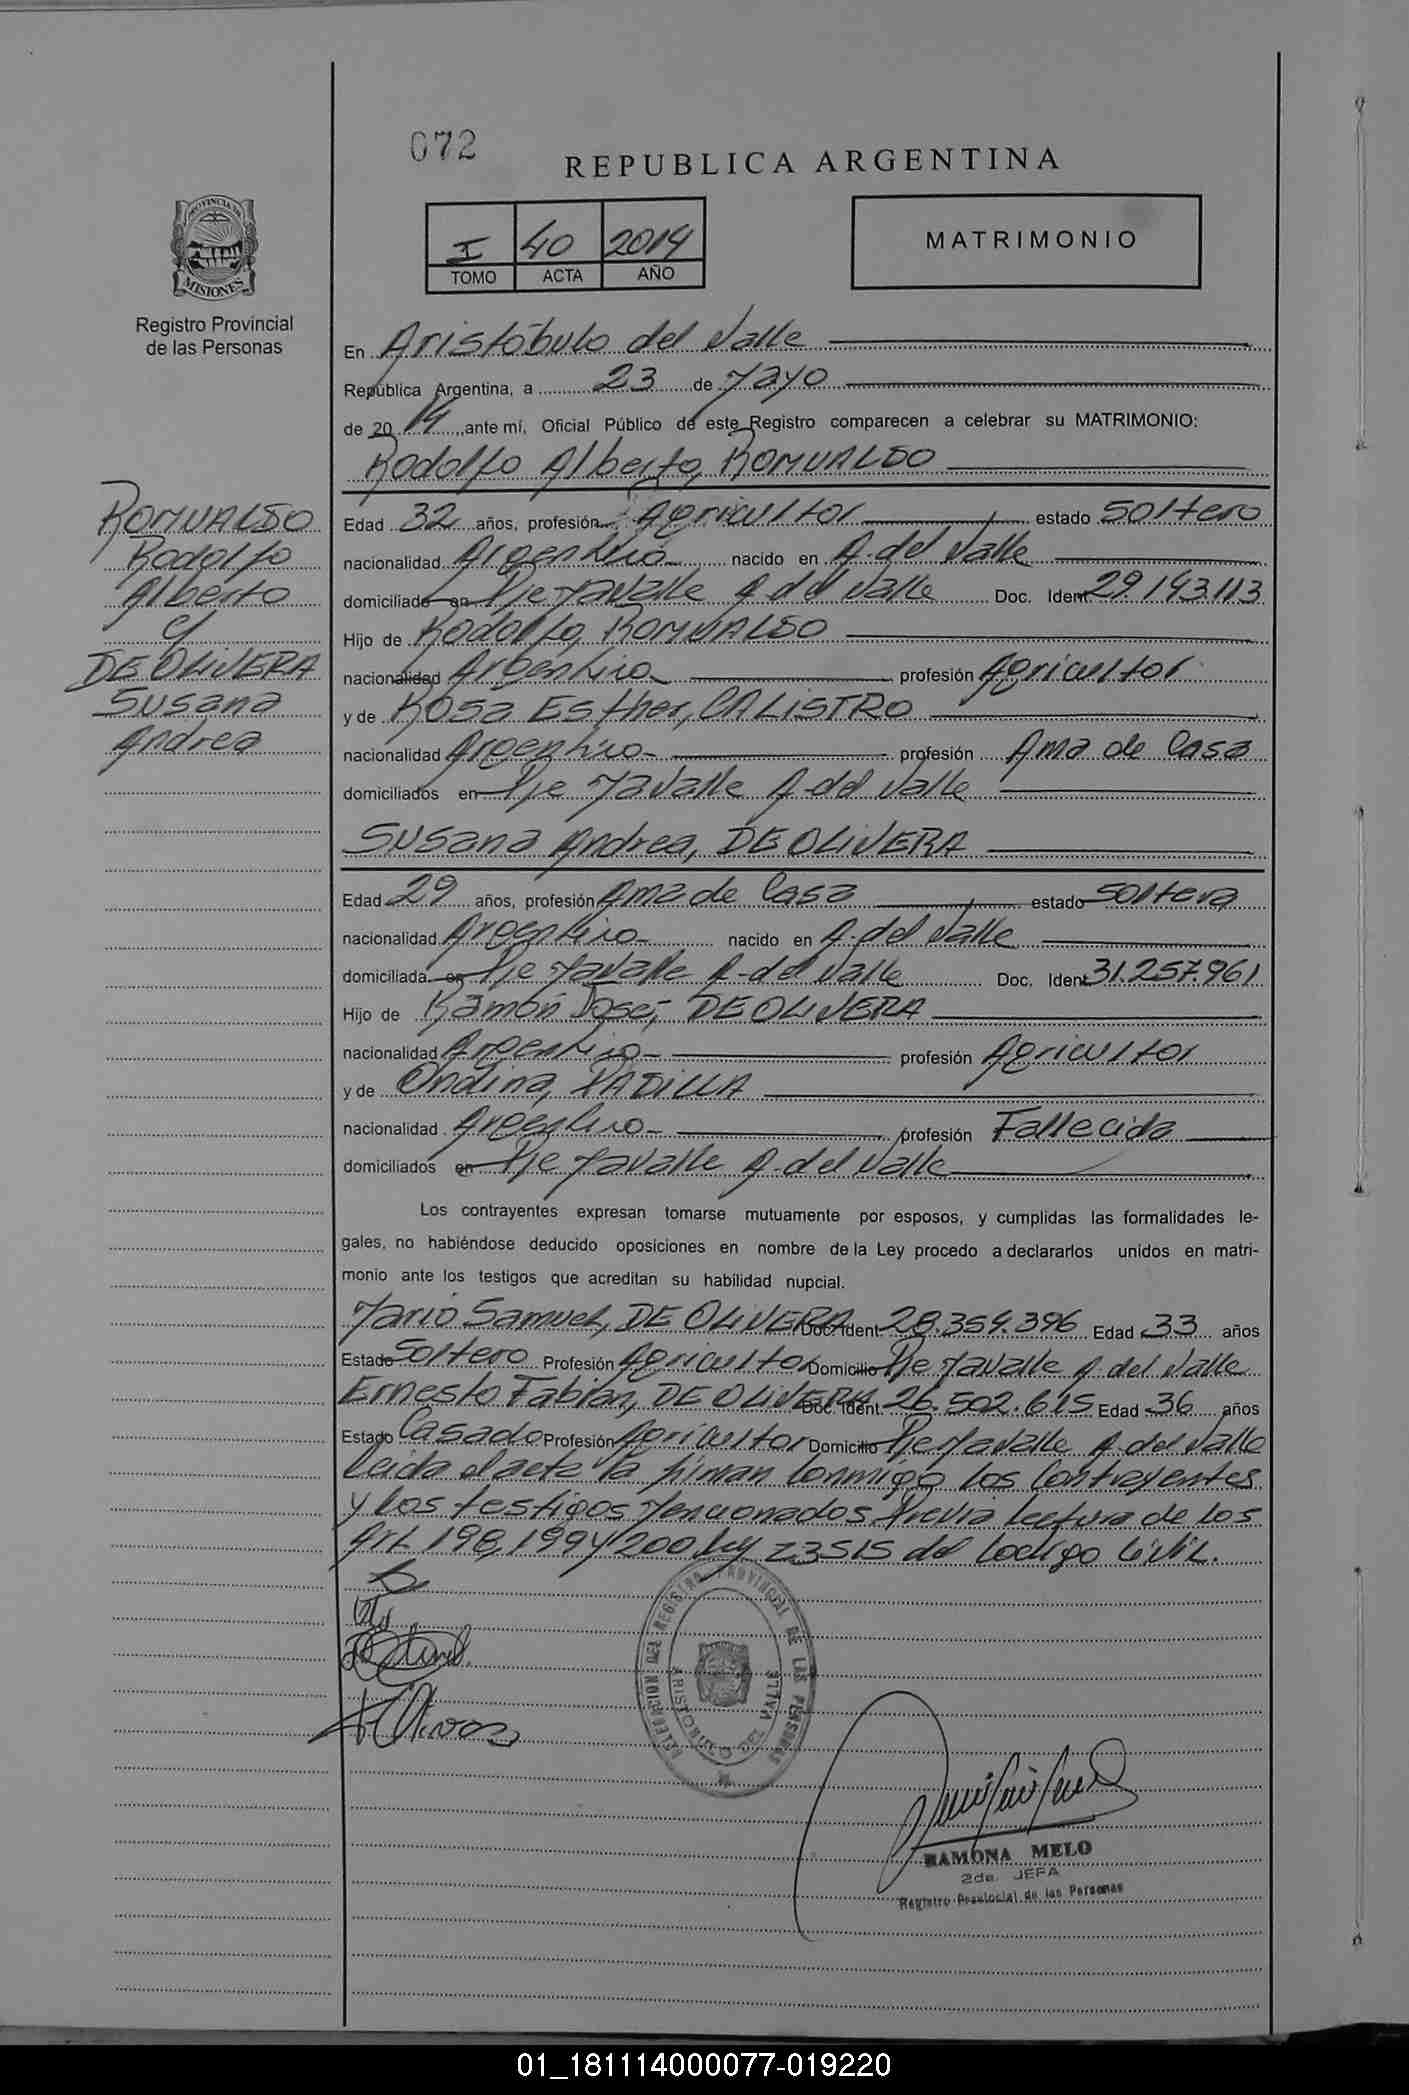 072
REPUBLICA ARGENTINA
I 40 2014
TOMO ACTA AÑO
MATRIMONIO
PROVINCIA DE
MISIONES
Registro Provincial
de las Personas
En Aristóbulo del Valle
República Argentina, a 23 de Mayo
de 2014, ante mí, Oficial Público de este Registro comparecen a celebrar su MATRIMONIO:
Rodolfo Alberto, ROMUALDO
ROMUALDO
Rodolfo
Alberto
y
DE OLIVERA
Susana
Andrea
Edad 32 años, profesión Agricultor estado Soltero
nacionalidad Argentino nacido en A. del Valle
domiciliado en Pje Mavalle A. del Valle Doc. Ident 29.143.113
Hijo de Rodolfo, ROMUALDO
nacionalidad Argentino profesión Agricultor
y de Rosa Esther, CALISTRO
nacionalidad Argentino profesión Ama de Casa
domiciliados en Pje Mavalle A. del Valle
Susana Andrea, DE OLIVERA
Edad 29 años, profesión Ama de Casa estado Soltera
nacionalidad Argentino nacido en A. del Valle
domiciliada en Pje Mavalle A. del Valle Doc. Ident 31.257.961
Hijo de Ramón José, DE OLIVERA
nacionalidad Argentino profesión Agricultor
y de Ondina, PADILLA
nacionalidad Argentino profesión Fallecida
domiciliados en Pje Mavalle A. del Valle
Los contrayentes expresan tomarse mutuamente por esposos, y cumplidas las formalidades le-
gales, no habiéndose deducido oposiciones en nombre de la Ley procedo a declararlos unidos en matri-
monio ante los testigos que acreditan su habilidad nupcial.
Mario Samuel, DE OLIVERA Doc. Ident 28.359.396 Edad 33 años
Estado Soltero Profesión Agricultor Domicilio Pje Mavalle A. del Valle
Ernesto Fabian, DE OLIVERA Doc. Ident. 26.502.615 Edad 36 años
Estado Casado Profesión Agricultor Domicilio Pje Mavalle A. del Valle
Leida el acta la firman conmigo los Contrayentes
y los testigos Mencionados Previa lectura de los
Art. 198, 199 y 200 Ley 23515 del Codigo Civil.
DELEGACION DEL REGISTRO PROVINCIAL DE LAS PERSONAS
ARISTOBULO DEL VALLE
RAMONA MELO
2da. JEFA
Registro Provincial de las Personas
01_181114000077-019220